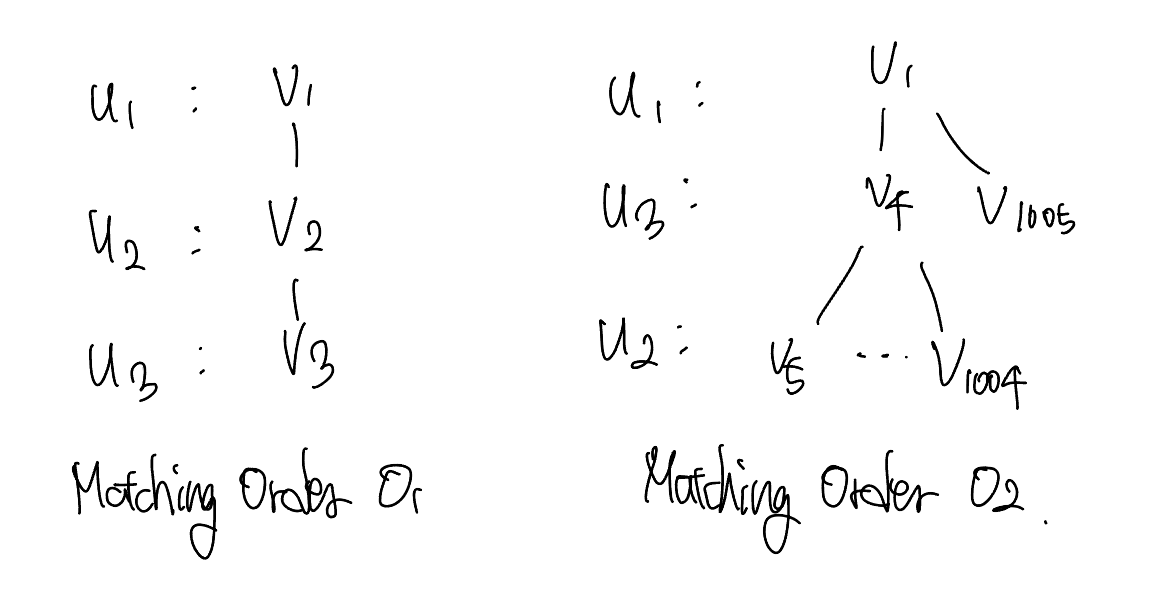 u₁ : V₁
u₂ : V₂
u₃ : V₃
Matching Order O₁
u₁ : V₁
u₃ : V₄ V₁₀₀₅
u₂ : V₅ ... V₁₀₀₄
Matching Order O₂.